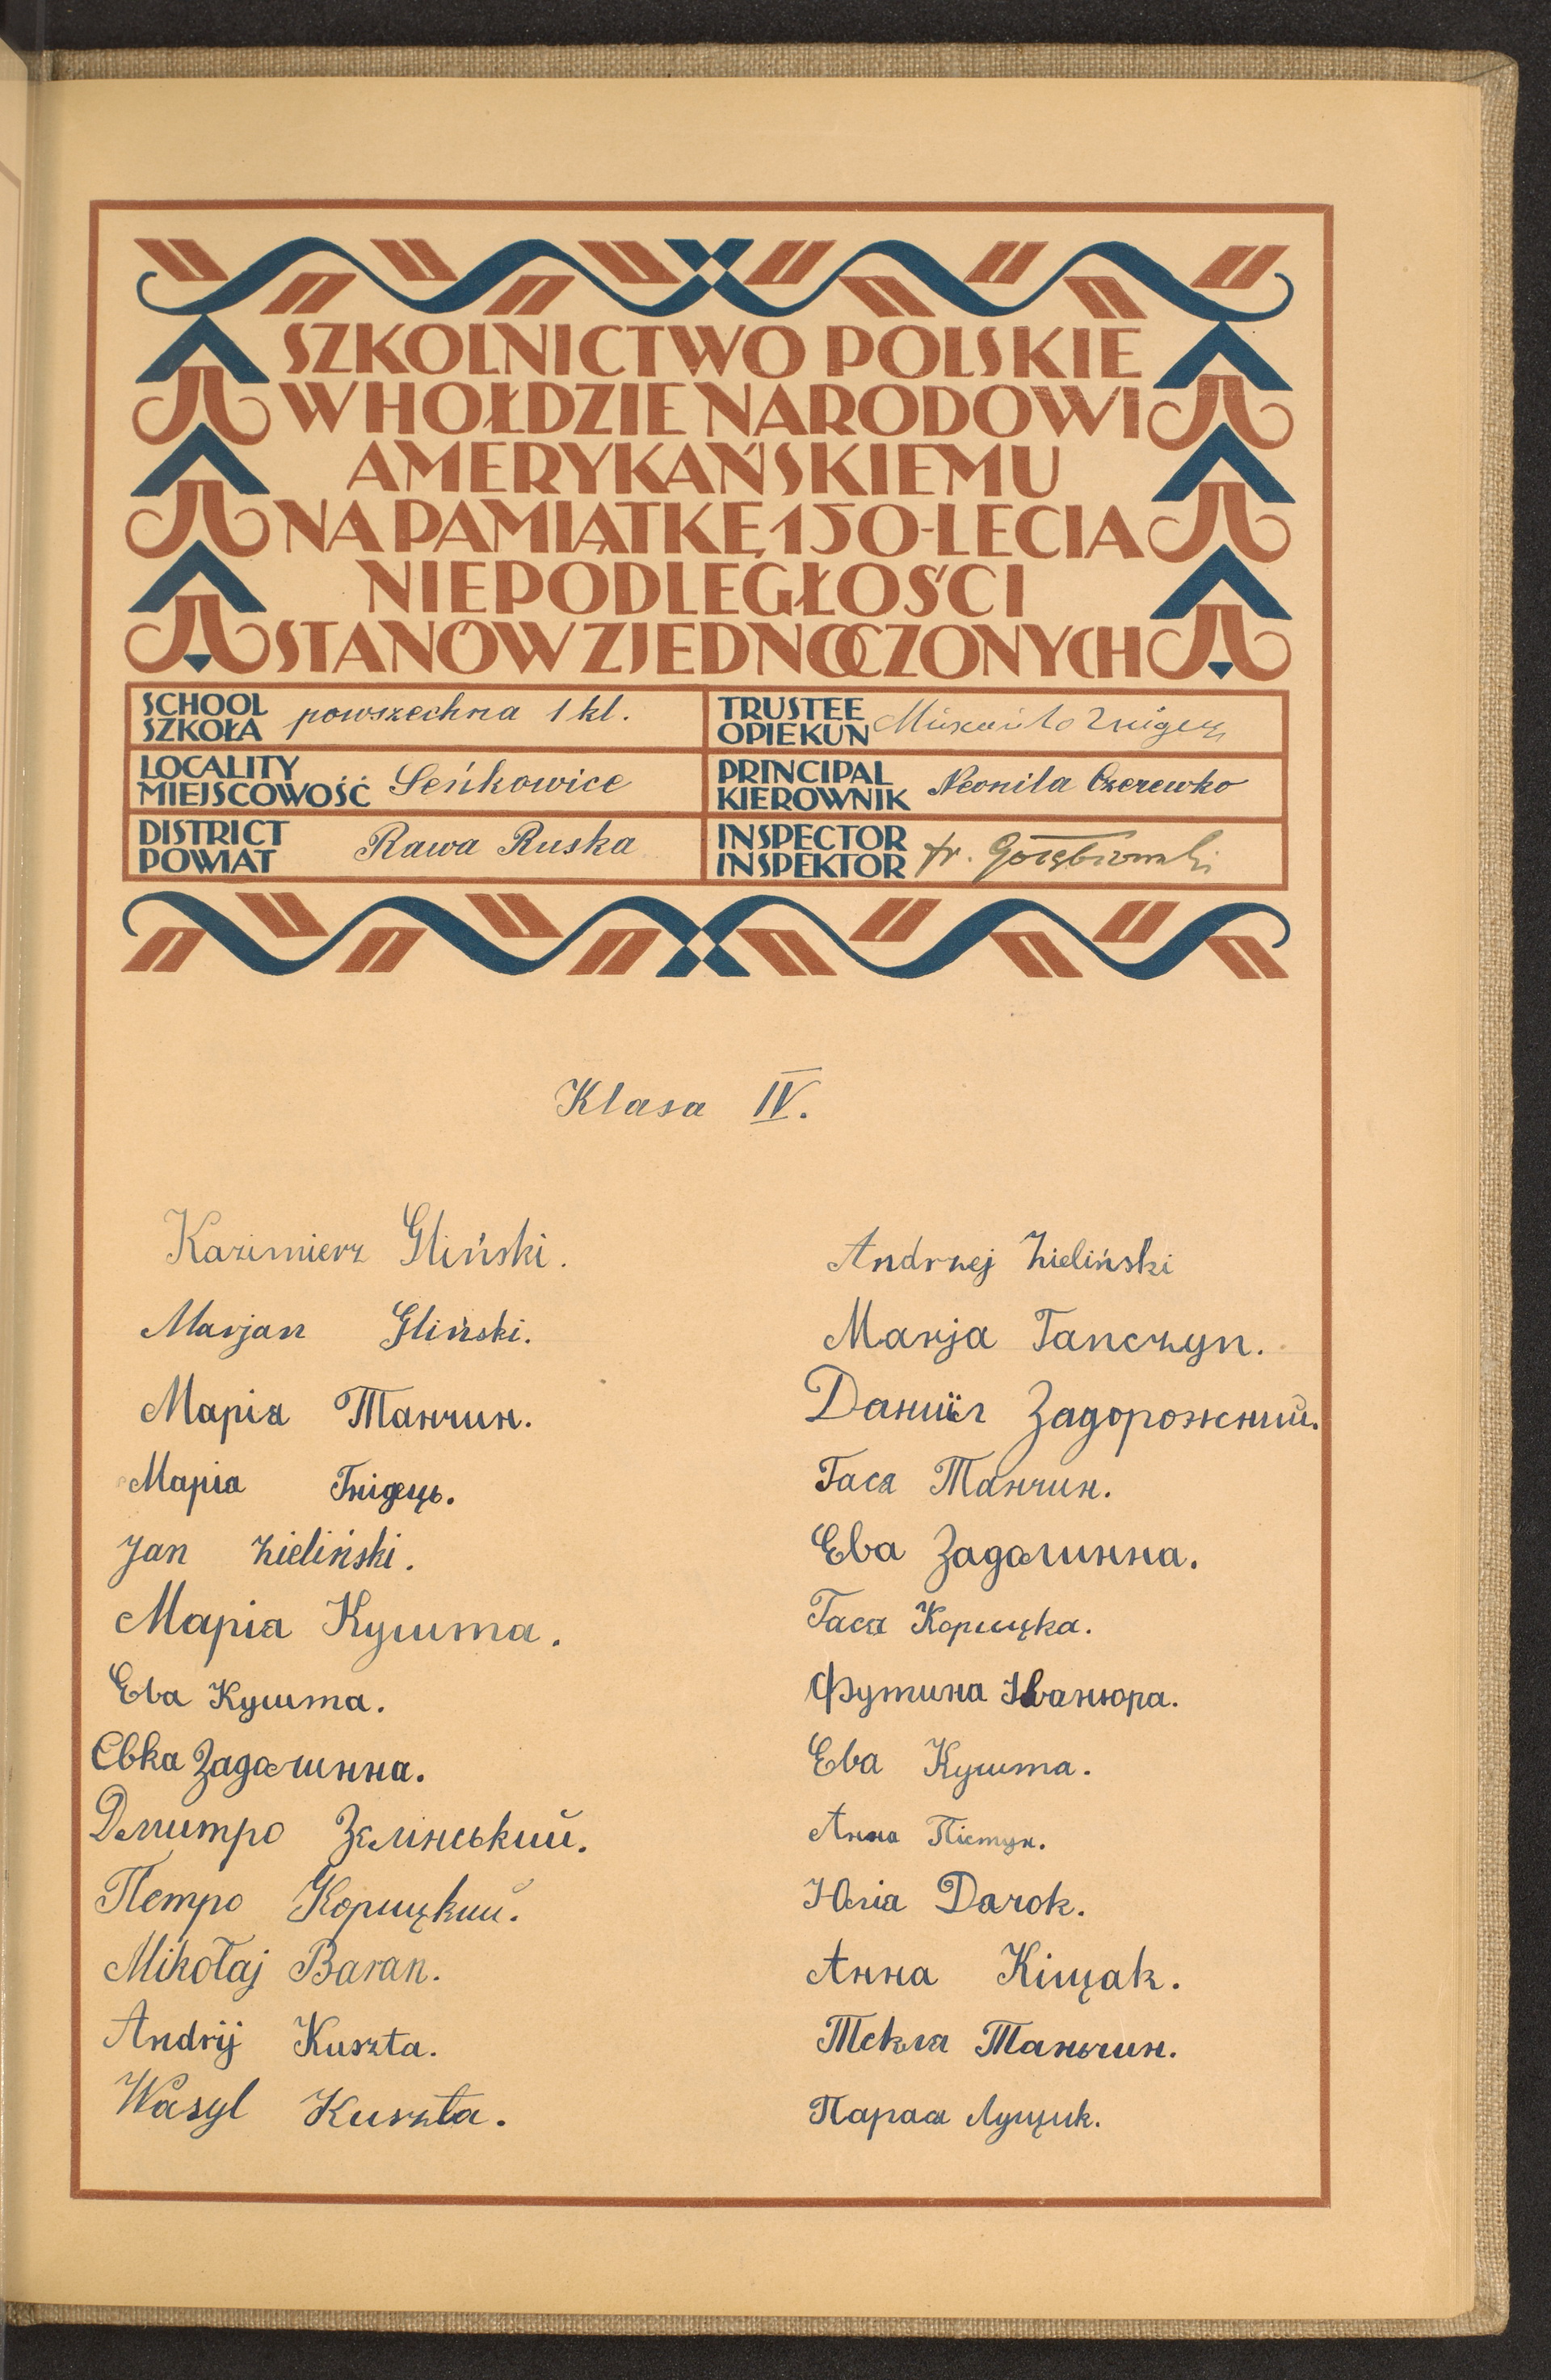 SZKOLNICTWO POLSKIE
W HOŁDZIE NARODOWI
AMERYKAŃSKIEMU
NA PAMIĄTKĘ 150-LECIA
NIEPODLEGŁOŚCI
STANÓW ZJEDNOCZONYCH
SCHOOL
SZKOŁA powszechna 1 kl.
TRUSTEE
OPIEKUN
LOCALITY
MIEJSCOWOŚĆ Seńkowice
PRINCIPAL
KIEROWNIK Neonila Czerewko
DISTRICT
POWIAT Rawa Ruska
INSPECTOR
INSPEKTOR
Klasa IV.
Kazimierz Gliński.
Marjan Gliński.
Марія Танчин.
Марія Гнідець.
Jan Zieliński.
Марія Кушта.
Ева Кушта.
Євка Задалинна.
Дмитро Зелінський.
Петро Коршцкий.
Mikołaj Baran.
Andrij Kuszta.
Wasyl Kuszta.
Andrzej Zieliński
Marja Tanczyn.
Даниїл Задорожний.
Гася Танчин.
Ева Задалинна.
Гася
Футина Іванюра.
Ева Кушта.
Анна Пістун.
Юлія
Анна Кіщак.
Текля Таньчин.
Лущик.